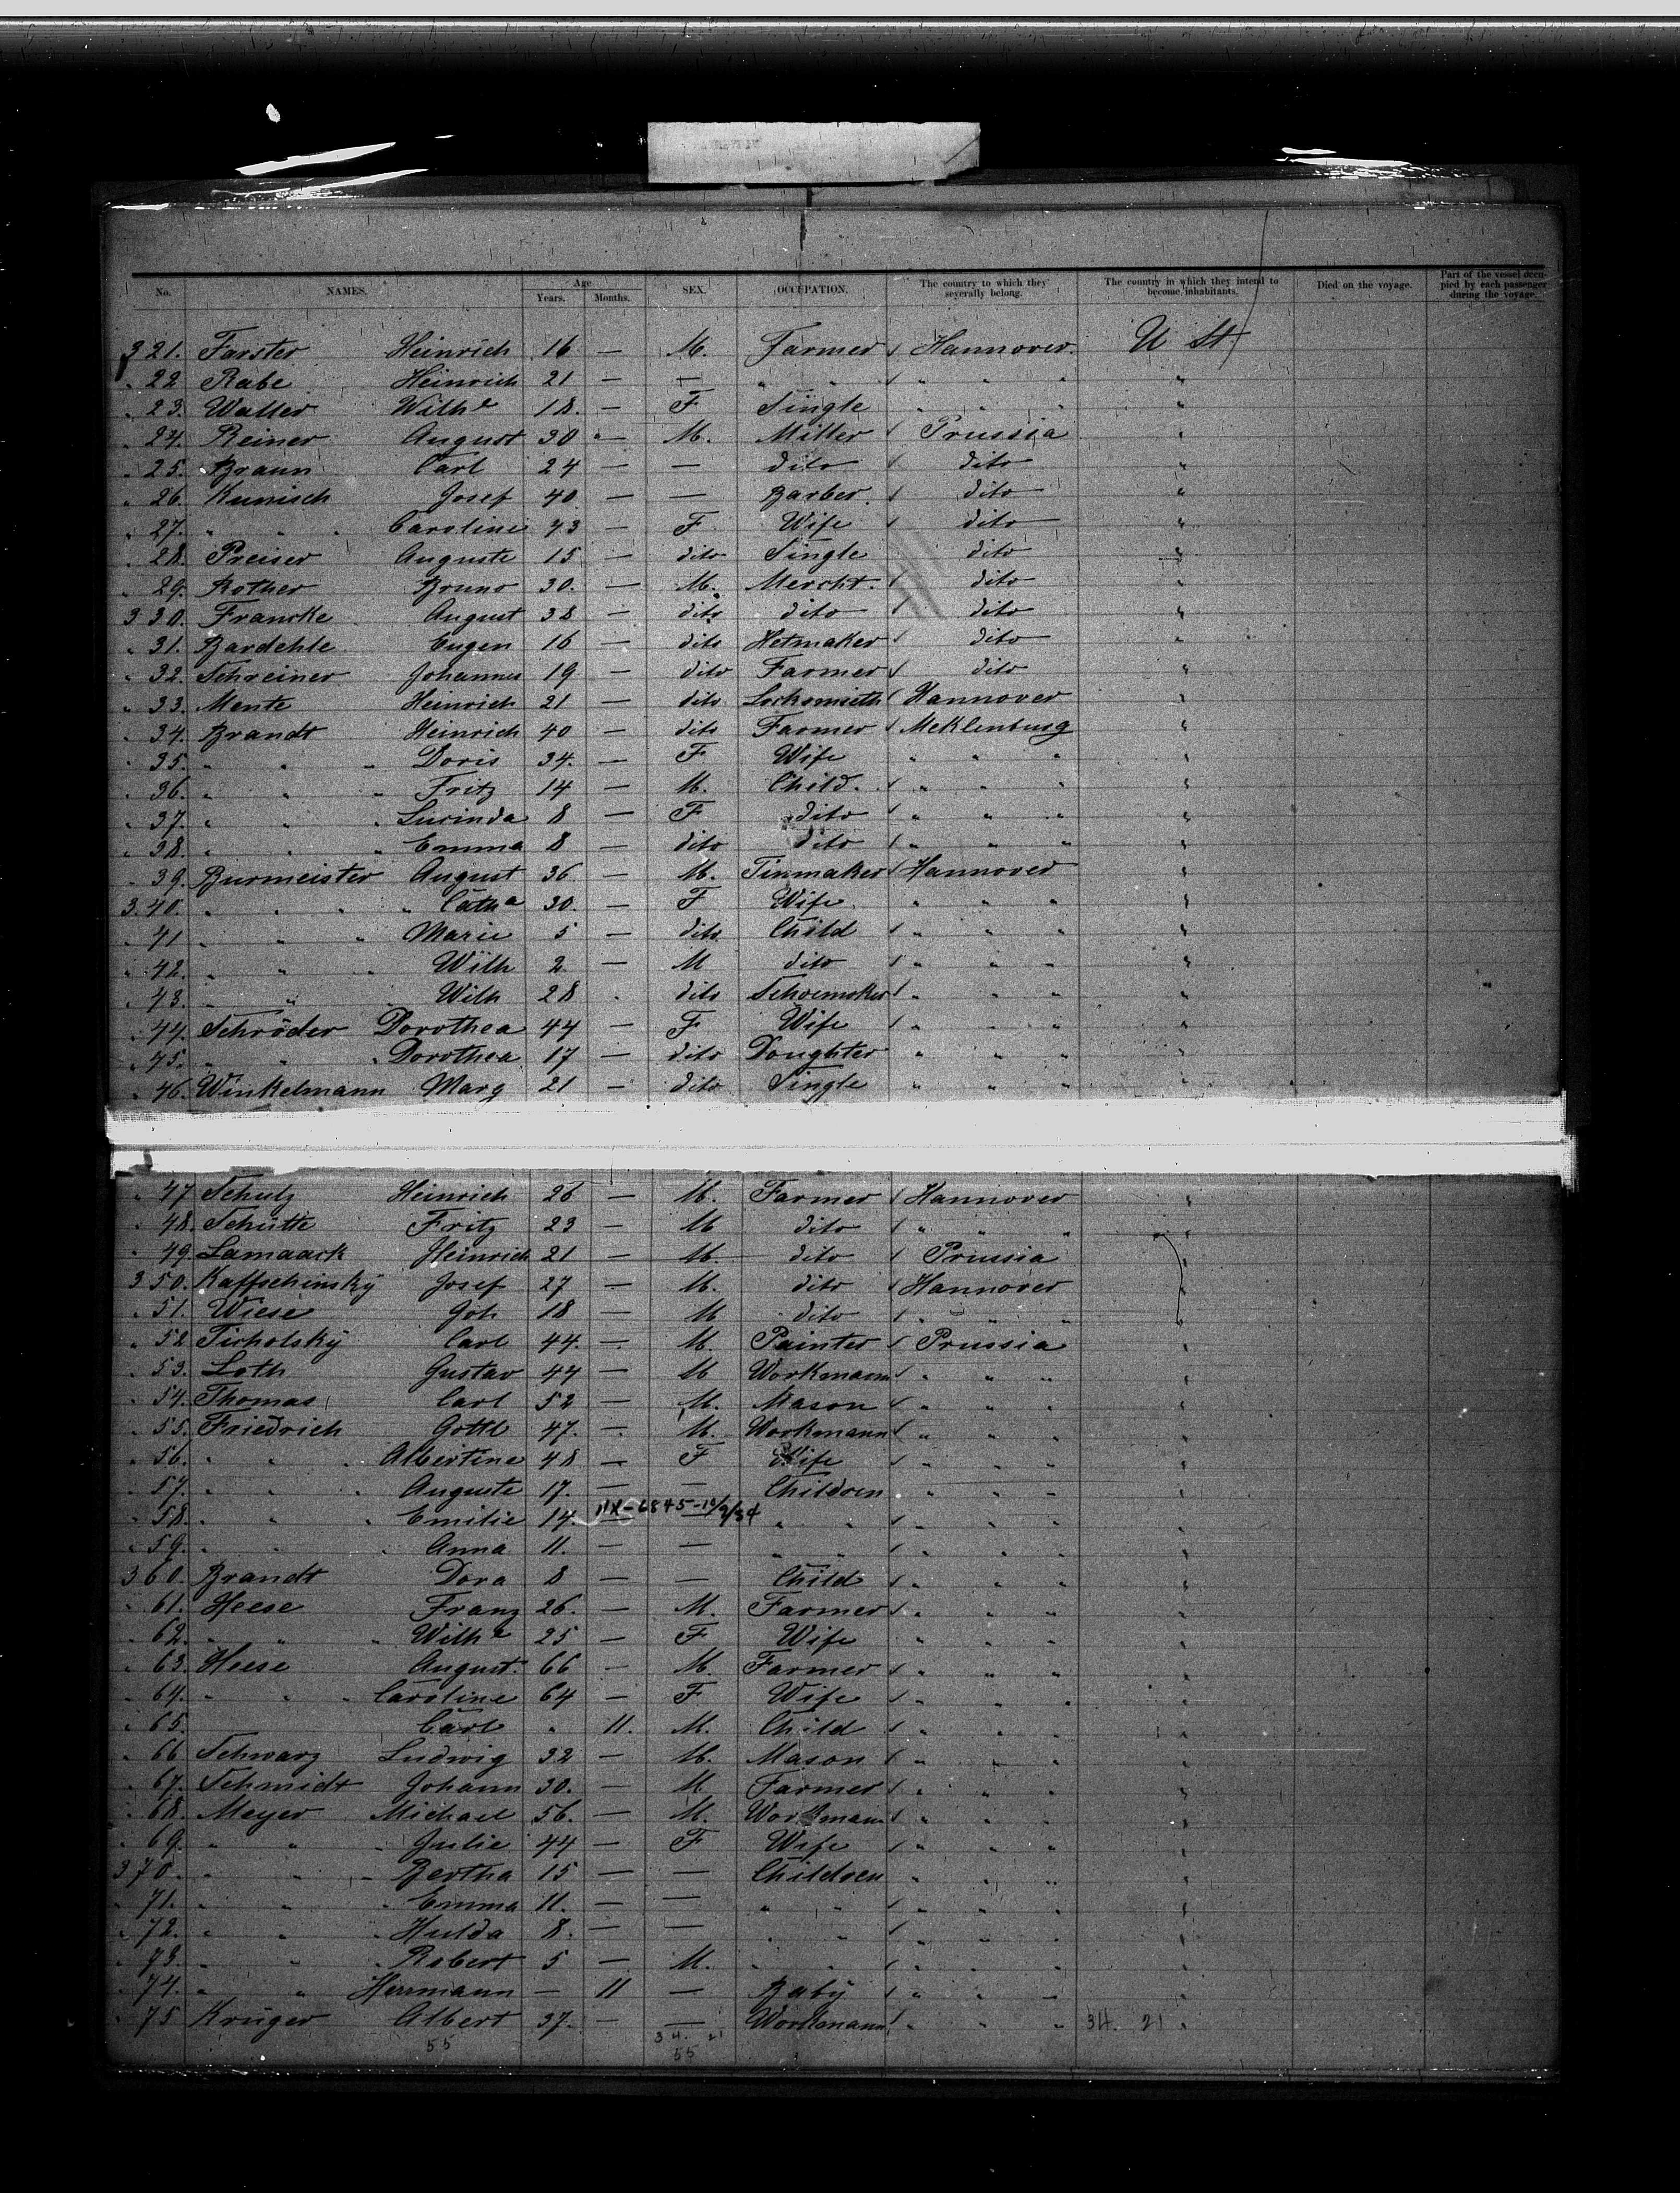 No. NAMES. Age Years. Months. SEX. OCCUPATION. The country to which they severally belong. The country in which they intend to become inhabitants. Died on the voyage. Part of the vessel occupied by each passenger during the voyage.
321. Farster Heinrich 16 — M. Farmer Hannover U St
" 22 Rabe Heinrich 21 — — " " " " " "
" 23. Walter Wilhe 18. — F Single " " " "
" 24. Reiner August 30 — M. Miller Prussia "
" 25. Braun Carl 24 — — dito dito "
" 26. Kunisch Josef 40 — — Barber dito "
" 27. " " Caroline 43 — F Wife dito "
" 28. Preiser Auguste 15 — dito Single dito "
" 29. Rother Bruno 30. — M. Mercht. dito "
330. Francke August 38 — dito dito dito "
" 31. Bardehle Eugen 16 — dito Hetmaker dito "
" 32. Schreiner Johannes 19 — dito Farmer dito "
" 33. Mente Heinrich 21 — dito Locksmieth Hannover "
" 34. Brandt Heinrich 40 — dito Farmer Meklenburg "
" 35. " " " Doris 34. — F Wife " " " "
" 36. " " " Fritz 14 — M. Child. " " " "
" 37. " " " Lucinda 8 — F dito " " " "
" 38. " " " Emma 8 — dito dito " " " "
" 39. Burmeister August 36 — M. Tinmaker Hannover "
340. " " " Catha 30. — F Wife " " " "
" 41 " " " Marie 5 — dito Child " " " "
" 42. " " " Wilh 2 — M dito " " " "
" 43. " " " Wilh 28 . dito Schoemaker " " " "
" 44. Schröder Dorothea 44 — F Wife " " " "
" 45. " " " Dorothea 17 — dito Doughter " " " "
" 46. Winkelmann Marg 21 — dito Single " " " "
" 47 Schulz Heinrich 26 — M. Farmer Hannover "
" 48. Schütte Fritz 23 — M dito " " " "
" 49. Lamaack Heinrich 21 — M. dito Prussia "
350. Kaffschinsky Josef 27 — M. dito Hannover "
" 51. Wiese Joh 18 — M dito " " " "
" 52 Ticholsky Carl 44. — M. Painter Prussia "
" 53. Loth Gustav 44 — M Workmann " " " "
" 54. Thomas Carl 52 — M. Mason " " " "
" 55. Friedrich Gottl 47. — M. Workmann " " " "
" 56. " " " Albertine 48 — F Wife " " " "
" 57. " " Auguste 17. — — Children " " " "
" 58. " " " Emilie 14. 11X-6845-10/9/34 " " " " " "
" 59. " " " Anna 11. — — " " " " " "
360. Brandt Dora 8 — — Child " " " "
" 61. Heese Franz 26. — M. Farmer " " " "
" 62. " " " Wilhe 25 — F Wife " " " "
" 63. Heese August 66 — M. Farmer " " " "
" 64. " " " Caroline 64 — F Wife " " " "
" 65. Carl " 11. M. Child " " " "
" 66 Schwarz Ludwig 32 — M. Mason " " " "
" 67. Schmidt Johann 30. — M. Farmer " " " "
" 68. Meyer Michael 56. — M. Workmann " " " "
" 69. " " " Julie 44 — F Wife " " " "
370. " " " Bertha 15 — — Children " " " "
" 71. " " " Emma 11. — — " " " " " "
" 72. " " " Hulda 8. — — " " " " " "
" 73. " " " Robert 5 — M. " " " " " "
" 74. " " Herrmann — 11 — Baby " " " "
" 75 Krüger Albert 37. — — Workmann " " " 34. 21 "
55 34. 21
55